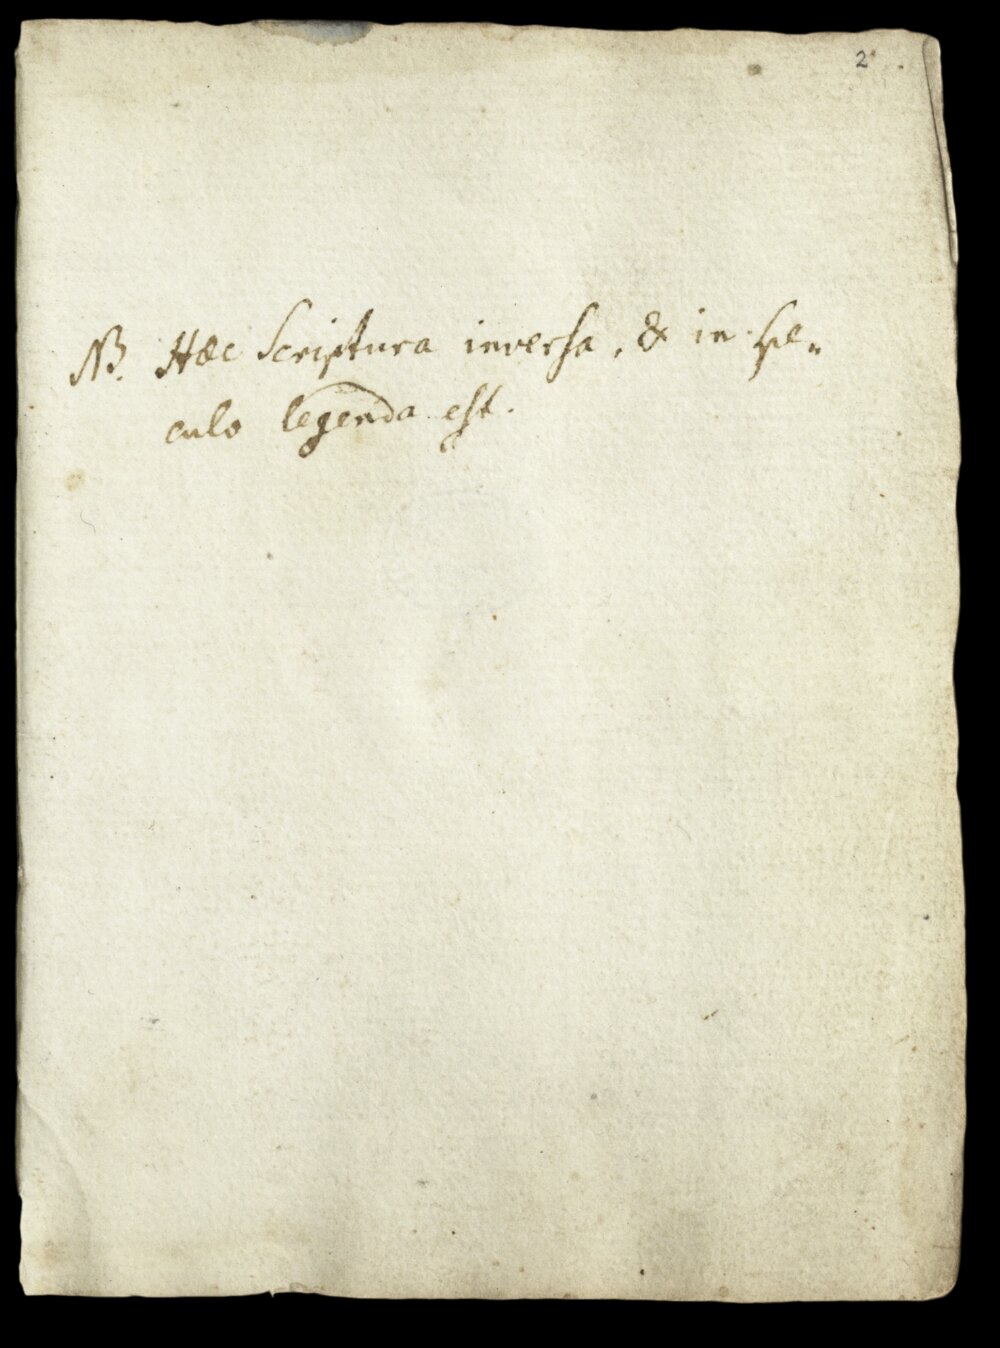 2
NB. Hæc Scriptura inversa, & in spe„
culo legenda est.